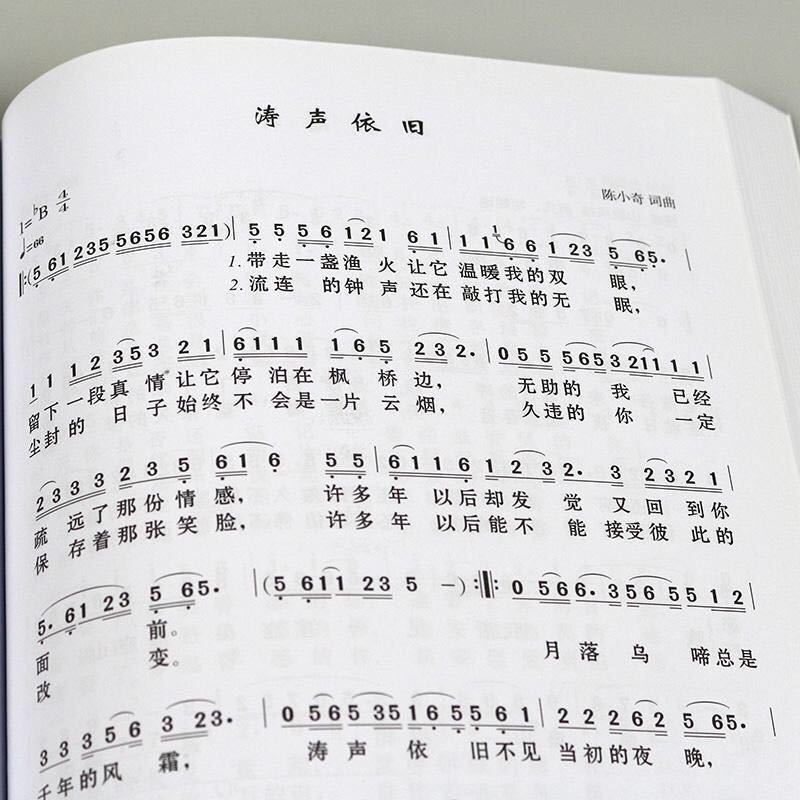 涛声依旧
陈小奇 词曲
1=♭B 4/4
♩=66
‖:(5 61 235 5656 321)| 5 5 5 6 121 61 | 1 1 6 6 123 5 65· |
1. 带走一盏渔 火让它 温暖我的双 眼，
2. 流连 的钟 声还在 敲打我的无 眠，
1 1 1 2 353 21 | 6111 165 232· | 055 565 3211 11 |
留下一段真 情让它 停 泊在枫 桥边， 无助的 我 已经
尘封的 日 子始终 不 会是一片 云烟， 久违的 你 一定
2333 235 616 55 | 6111 612 32·3 23212 |
疏 远了那份情感， 许多年 以后却发 觉 又回 到你
保 存着那张笑脸， 许多年 以后能不 能 接受彼 此的
5·6123 565· | (5 611 123 5 −) :‖: 0 566·356 5512 |
面 前。 月落 乌 啼总是
改 变。
33356 323· | 0565351655 6123 | 22262 565· |
千年的风 霜， 涛声 依 旧不见 当初的夜 晚，